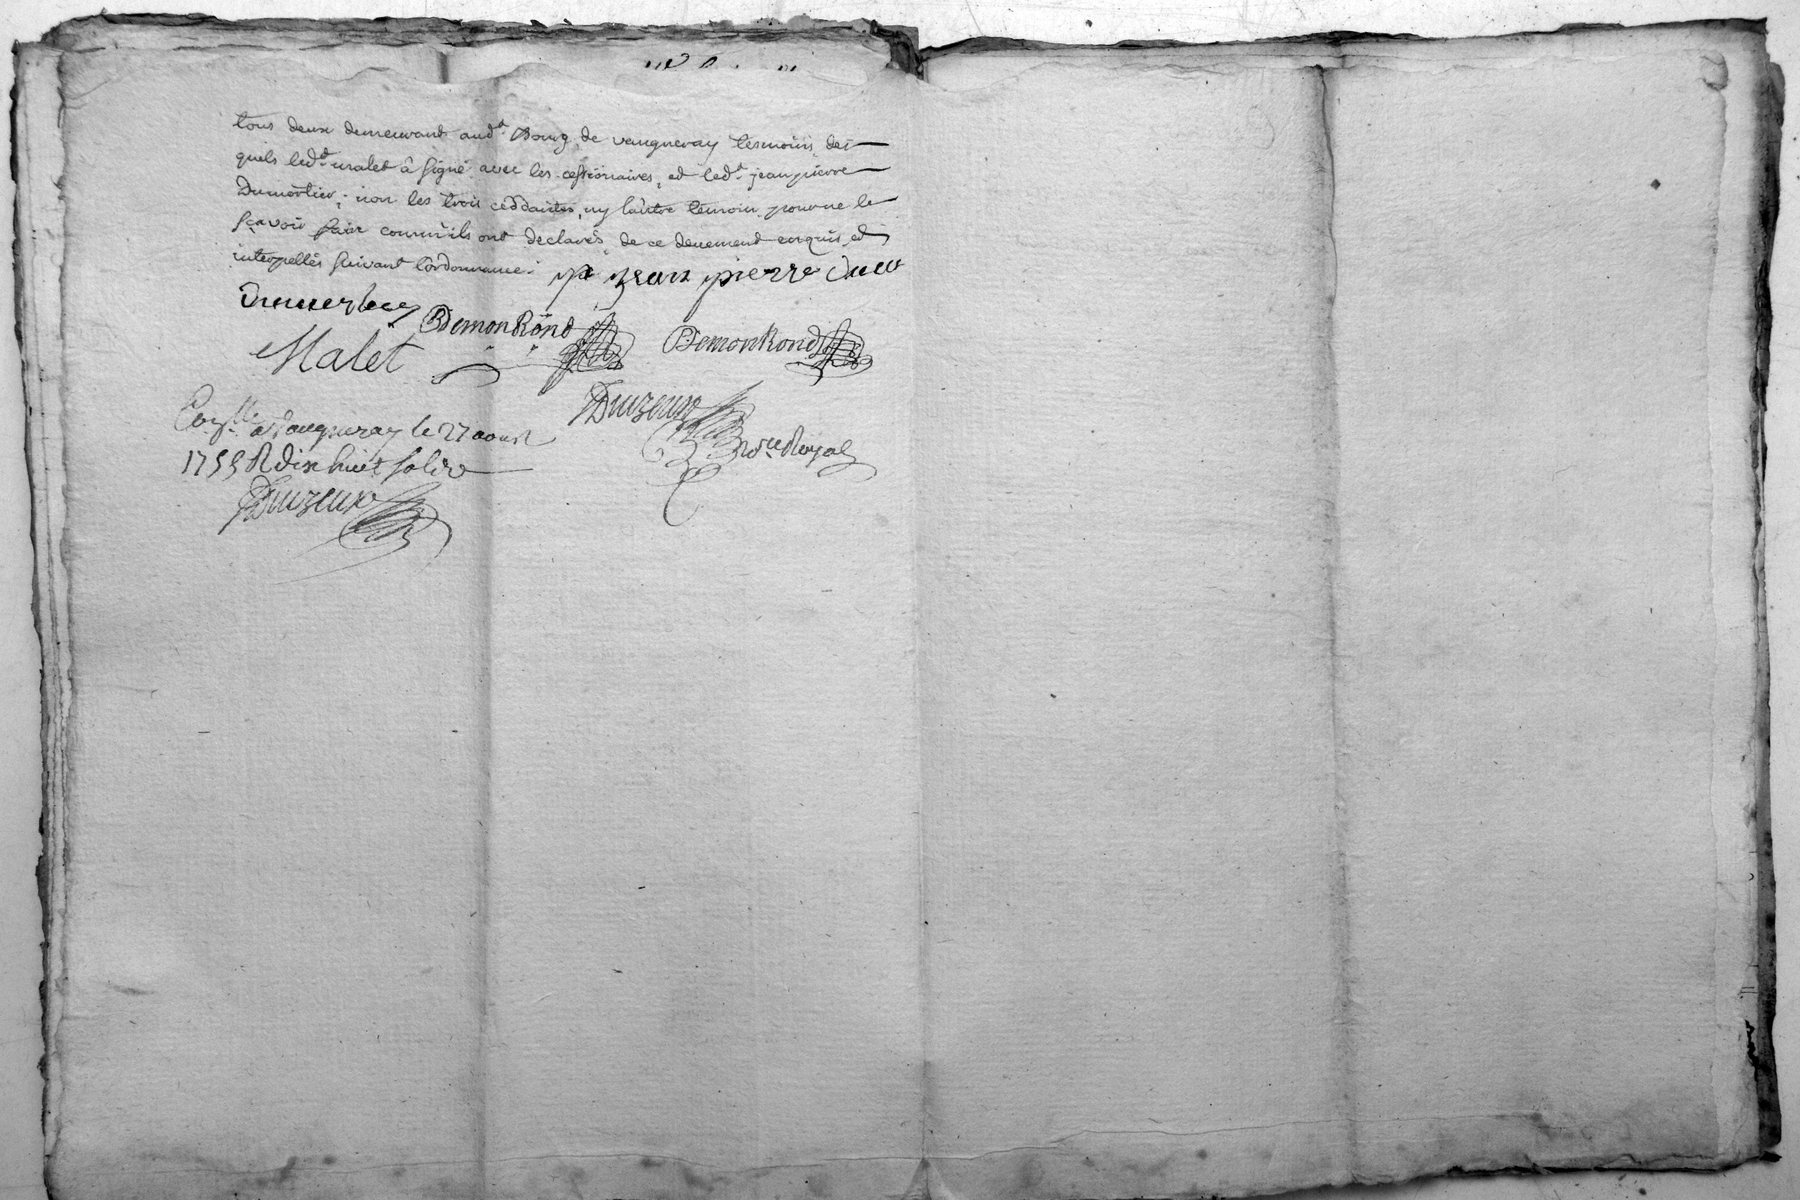 tous deux demeurant aud.t Bourg de vaugneray tesmoins des
quels led.t malet â signé avec les cessionaires, et led.t jean pierre
Dumortier, non les trois ceddantes, ny lautre témoin pour ne le
sçavoir faire comm'ils ont declarés de ce deuement enquis et
interpellés suivant l'ordonnance.
jean pierre
BDemonRond
BDemonRond
Malet
Duvzeux
a Vaugneray le 27 aoust
no.re Royal
1755 R dix huit sols
Duvzeux